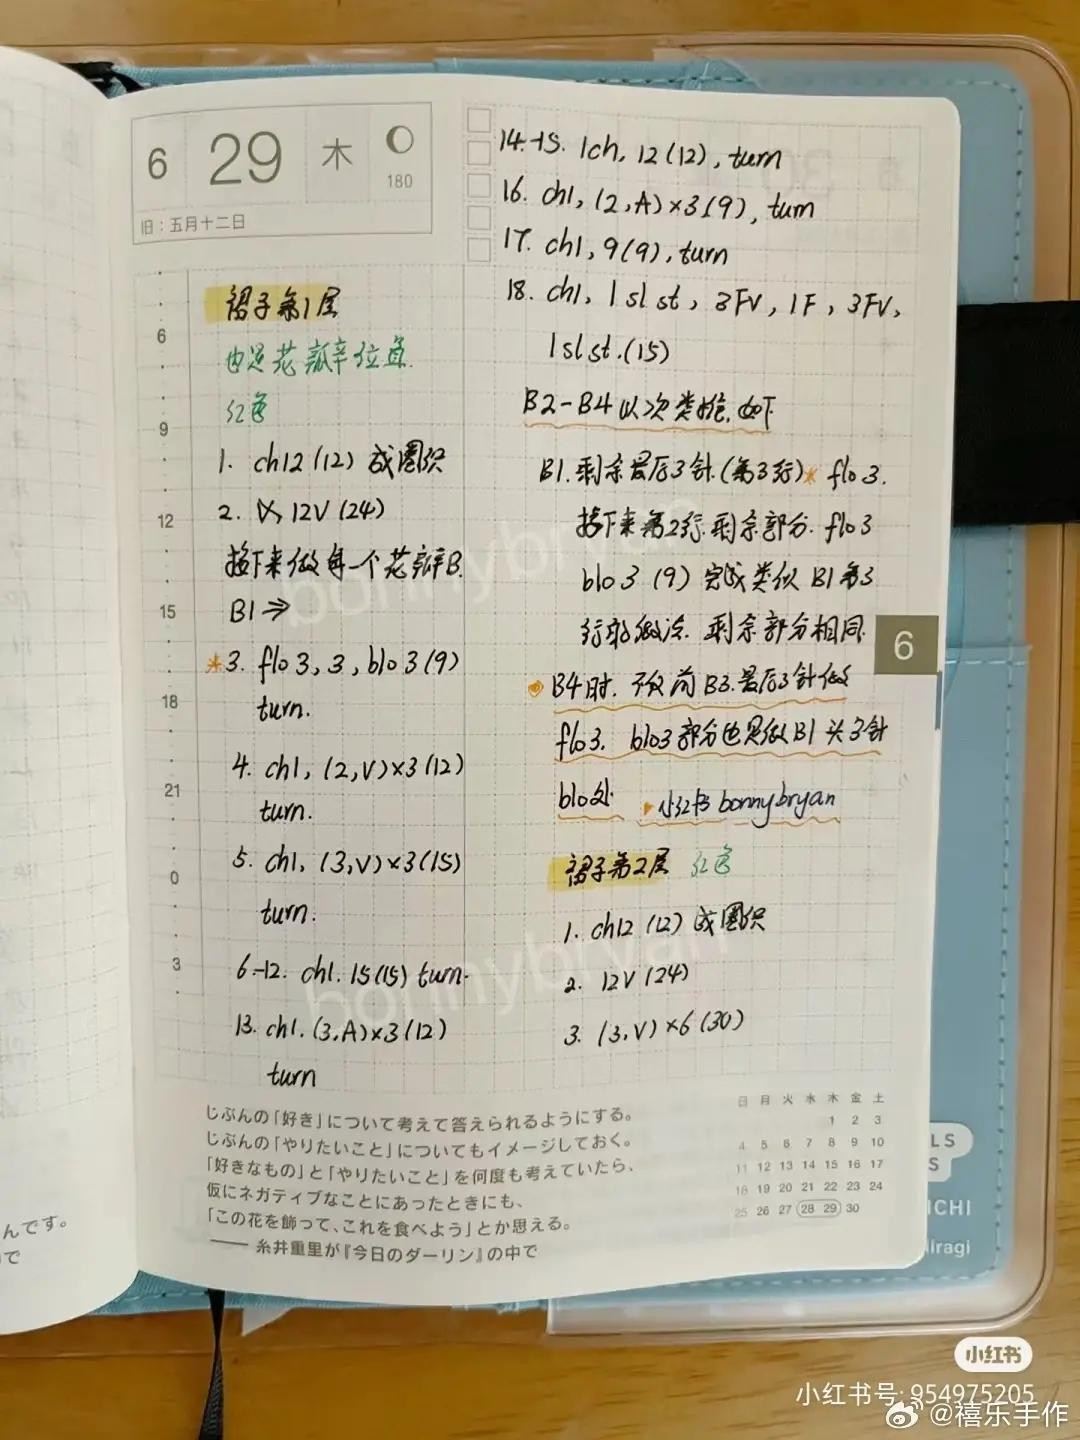 6 29 木
180
旧：五月十二日
裙子第1层
也是花瓣位置.
红色
1. ch12 (12) 成圈织
2. X, 12V (24)
接下来做每一个花瓣B.
B1⇒
*3. flo 3, 3, blo 3 (9)
turn.
4. ch1, (2,V)×3 (12)
turn.
5. ch1, (3,V)×3 (15)
turn.
6-12. ch1. 15(15) turn.
13. ch1. (3,A)×3 (12)
turn
14.-15. 1ch, 12 (12), turn
16. ch1, (2,A)×3 (9), turn
17. ch1, 9(9), turn
18. ch1, 1 sl st, 3FV, 1F, 3FV,
1 sl st. (15)
B2-B4 以次类推. 如下
B1. 剩余最后3针. (第3行)* flo 3.
接下来第2行.剩余部分. flo 3
blo 3 (9) 完成类似 B1 第3
行的做法. 剩余部分相同.
B4时. 前B3.最后3针做
flo3. blo3部分也是做B1 头3针
blo处.
小红书 bonnybryan
裙子第2层 红色
1. ch12 (12) 成圈织
2. 12V (24)
3. (3,V)×6 (30)
6
9
12
15
18
21
0
3
6
bonnybryan
bonnybryan
じぶんの「好き」について考えて答えられるようにする。
じぶんの「やりたいこと」についてもイメージしておく。
「好きなもの」と「やりたいこと」を何度も考えていたら、
仮にネガティブなことにあったときにも、
「この花を飾って、これを食べよう」とか思える。
―― 糸井重里が『今日のダーリン』の中で
日 月 火 水 木 金 土
1 2 3
4 5 6 7 8 9 10
11 12 13 14 15 16 17
18 19 20 21 22 23 24
25 26 27 28 29 30
んです。
で
LS
S
ICHI
iragi
小红书
小红书号: 954975205
@禧乐手作